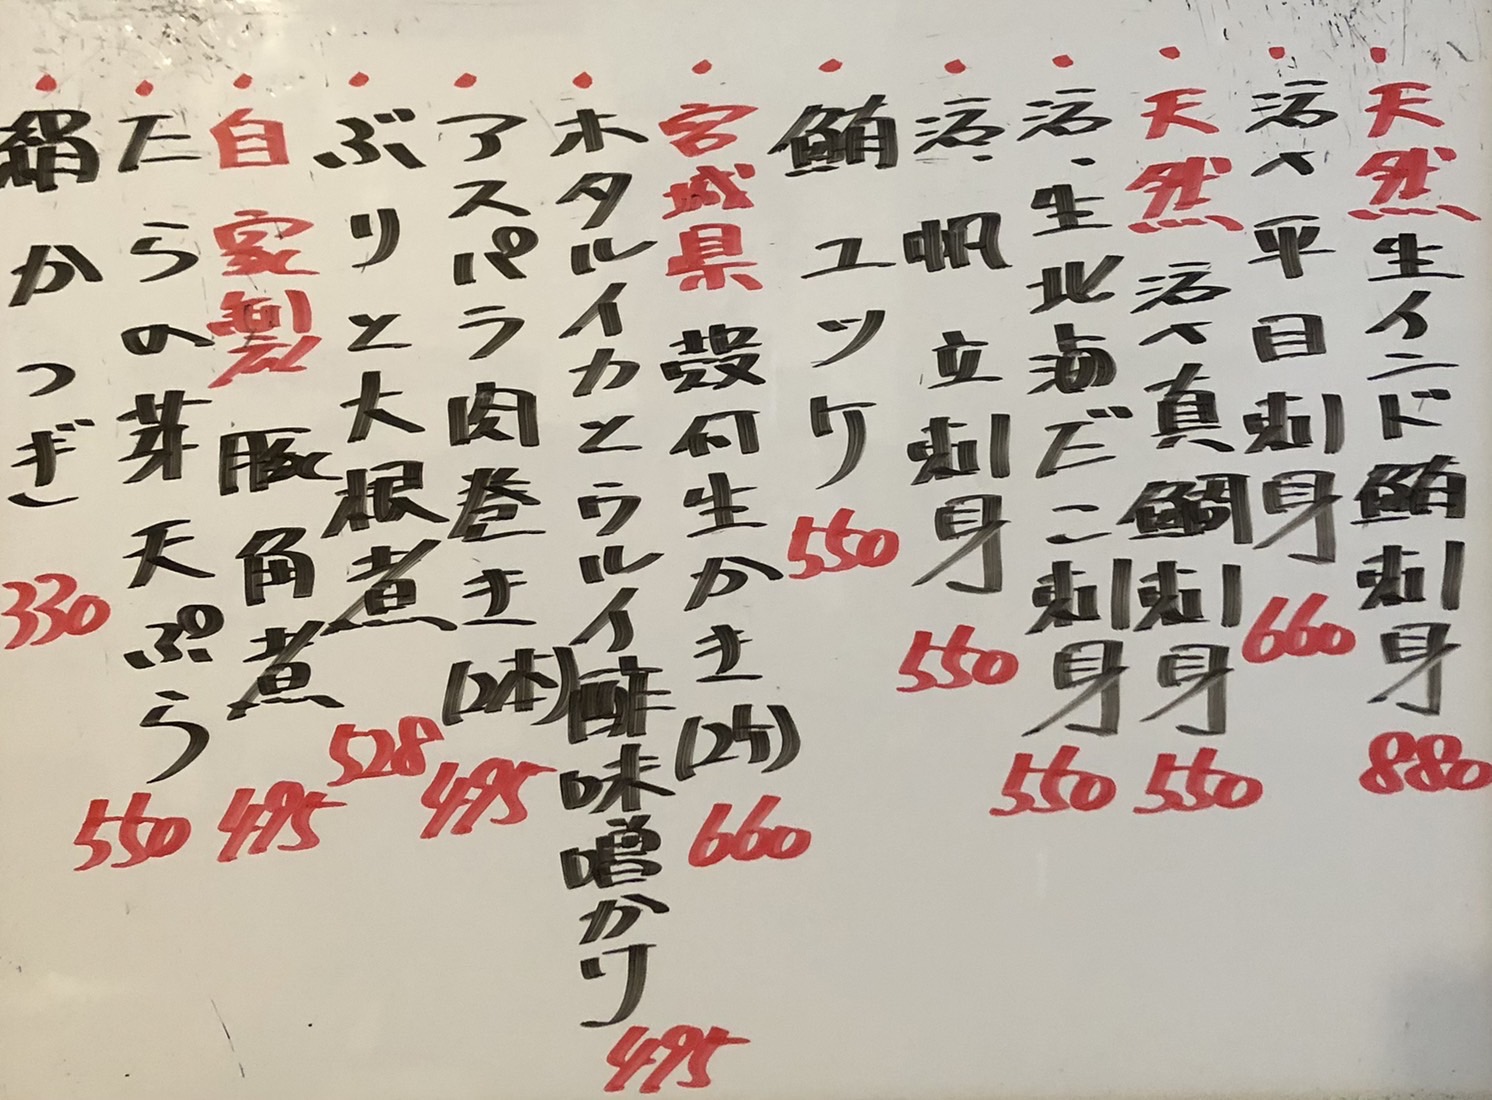 ・天然生インド鮪刺身 880
・活〆平目刺身 660
・天然活〆真鯛刺身 550
・活、生北海だこ刺身 550
・活、帆立刺身 550
・鮪ユッケ 550
・宮城県殻付生かき(2ケ) 660
・ホタルイカとウルイ酢味噌かけ 495
・アスパラ肉巻き(2本) 495
・ぶりと大根煮 528
・自家製豚角煮 495
・たらの芽天ぷら 550
・絹かつぎ 330